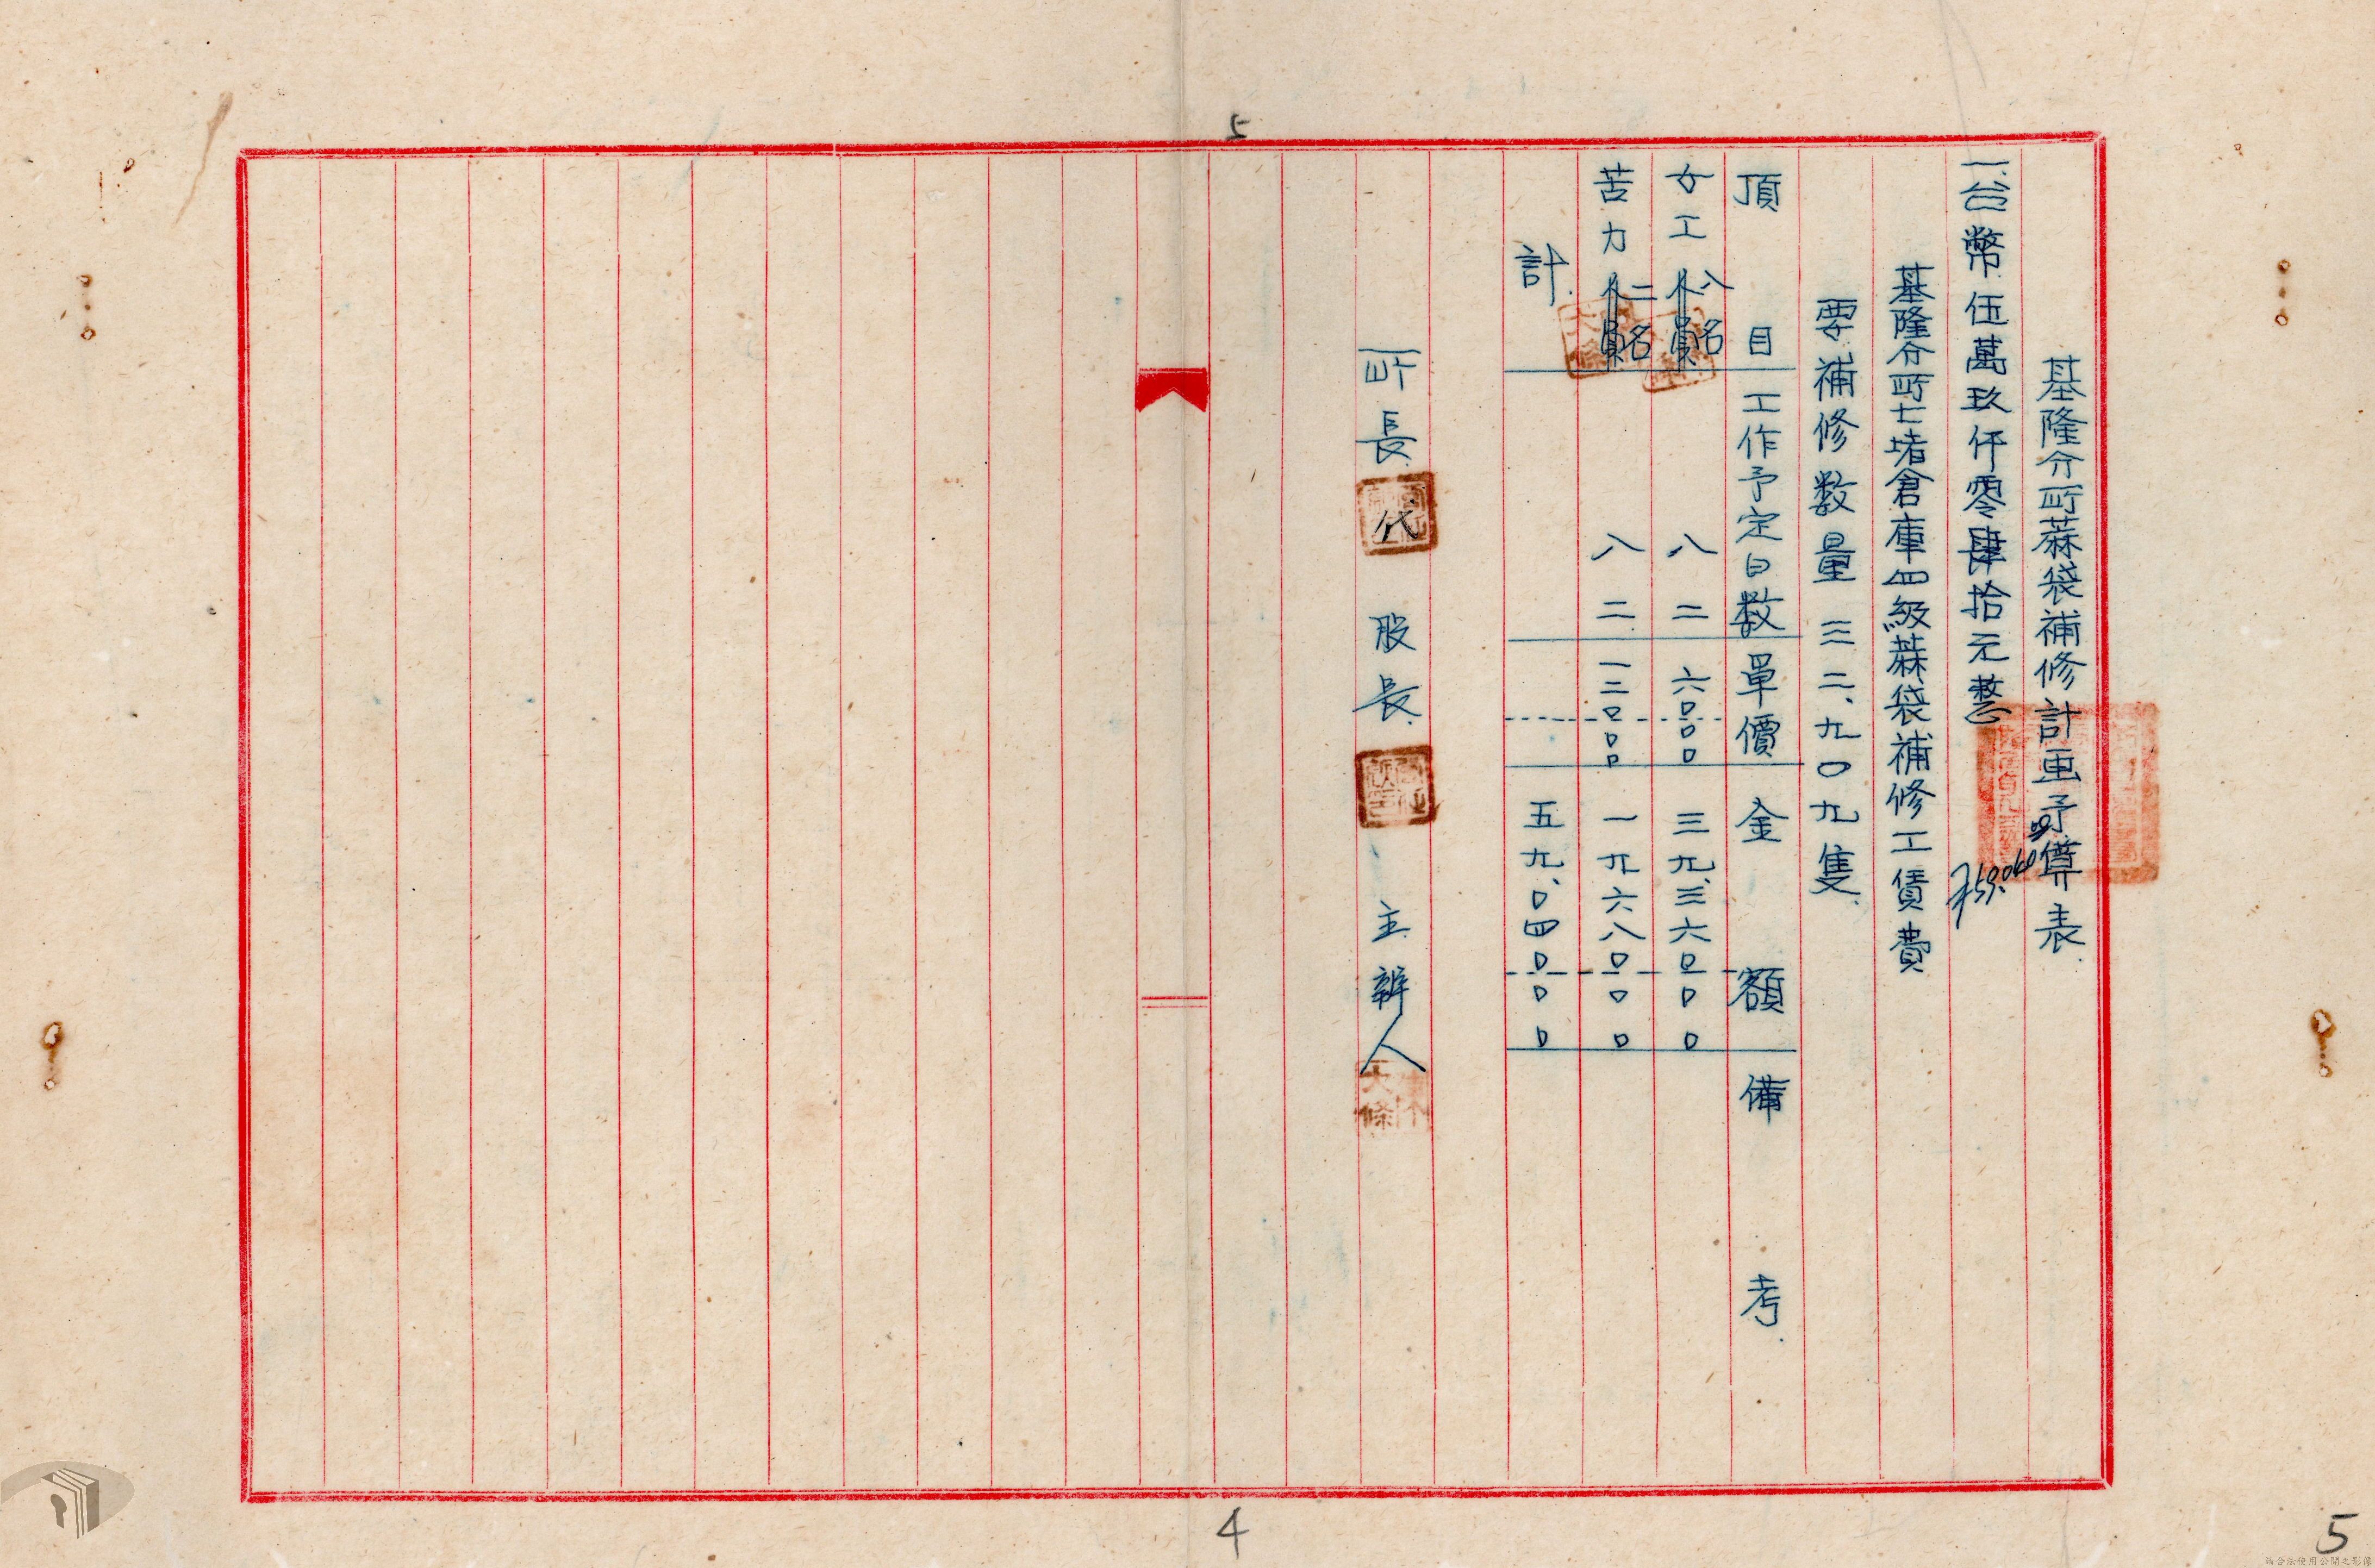 基隆分所蔴袋補修計画予算表
一、台幣伍萬玖仟零肆拾元整
基隆分所七堵倉庫四級蔴袋補修工賃費
要補修数量 三二、九〇九隻
項目 工作予定日数 單價 金額 備考
女工 八名 八二 六〇〇〇 三九、三六〇〇〇
苦力 二名 八二 一二〇〇〇 一九六八〇〇〇
計 五九、〇四〇〇〇
所長 代 股長 主辦人
5
4
5
請合法使用公開之影像